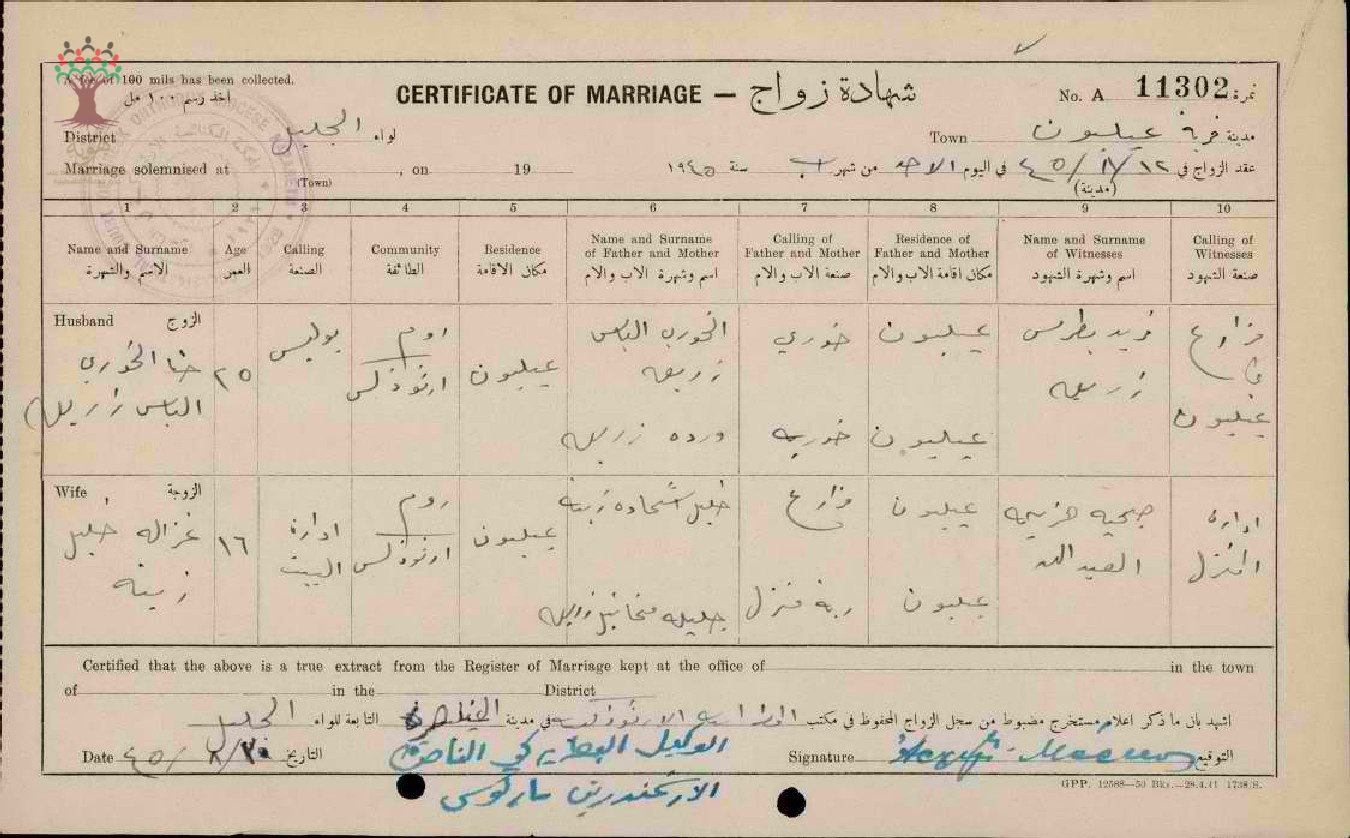 A fee of 100 mils has been collected.
اخذ رسم ١٠٠ مل
CERTIFICATE OF MARRIAGE — شهادة زواج
No. A 11302 نمرة
District الجليل لواء
Town عيلبون مدينة قرية
Marriage solemnised at , on 19
(Town)
عقد الزواج في ٤٥/٨/١٢ في اليوم الاحد من شهر آب سنة ١٩٤٥
(مدينة)
1 2 3 4 5 6 7 8 9 10
Name and Surname Age Calling Community Residence Name and Surname of Father and Mother Calling of Father and Mother Residence of Father and Mother Name and Surname of Witnesses Calling of Witnesses
الاسم والشهرة العمر الصنعة الطائفة مكان الاقامة اسم وشهرة الاب والام صنعة الاب والام مكان اقامة الاب والام اسم وشهرة الشهود صنعة الشهود
Husband الزوج
حنا الخوري
الياس زريق
٢٥
بوليس
روم
ارثوذكس
عيلبون
الخوري الياس
زريق
ورده زريق
خوري
خوريه
عيلبون
عيلبون
فريد بطرس
زريق
مزارع
في
عيلبون
Wife , الزوجة
غزاله خليل
زينه
١٦
ادارة
البيت
روم
ارثوذكس
عيلبون
خليل شحاده زينه
جليله زريق
مزارع
ربة منزل
عيلبون
عيلبون
صبحيه
العبدالله
ادارة
المنزل
Certified that the above is a true extract from the Register of Marriage kept at the office of in the town
of in the District
اشهد بان ما ذكر اعلاه مستخرج مضبوط من سجل الزواج المحفوظ في مكتب الارثوذكسيه في مدينة الناصرة التابعة للواء الجليل
Date ٤٥/٨/٢٠ التاريخ
الوكيل البطريركي الناصرة
Signature التوقيع
ماركوس
GPP. 12588—50 Bks.—29.4.41 1738/S.